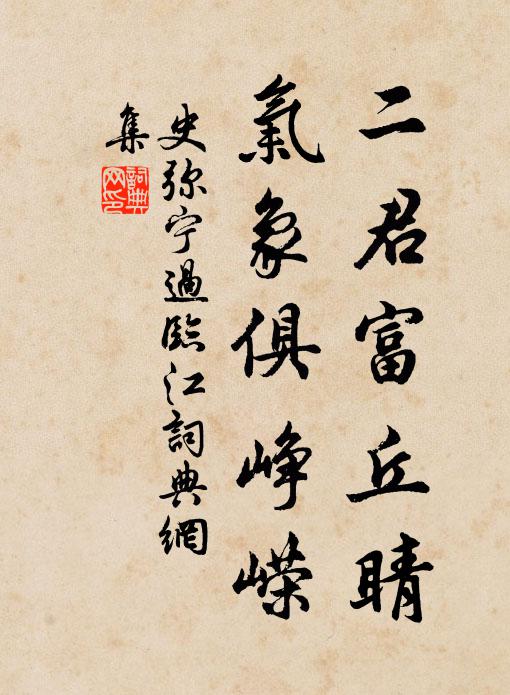 二君富丘晴
氣象俱峥嵘
史弥宁過臨江詞典網
集
詞典
网印